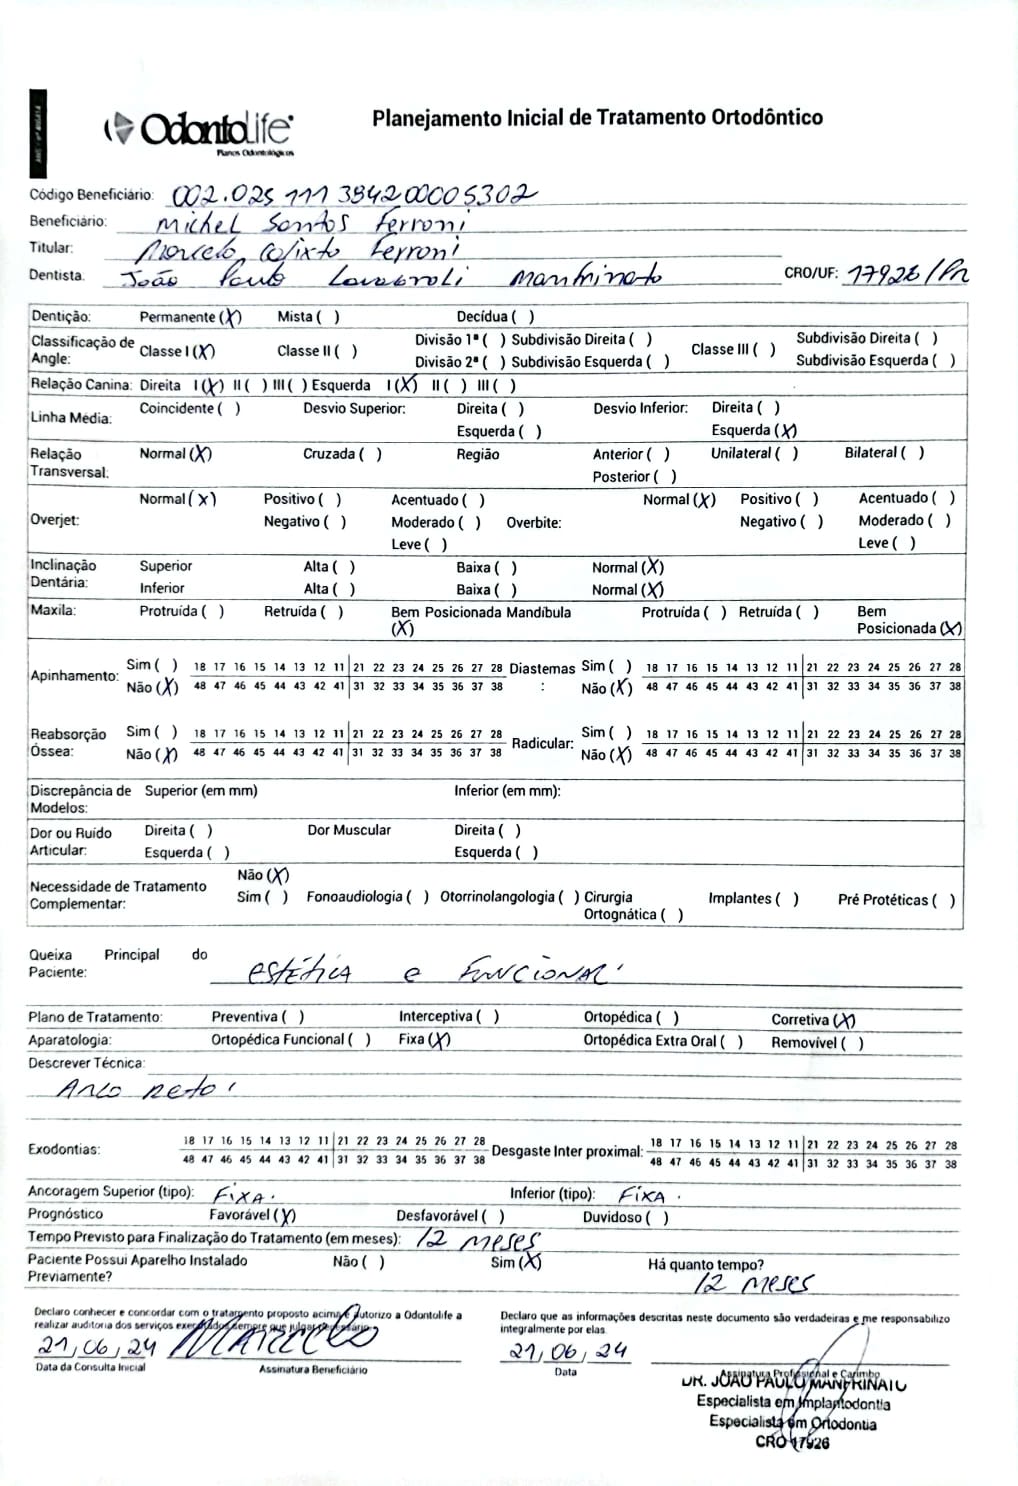 OdontoLife
Planos Odontológicos
Planejamento Inicial de Tratamento Ortodôntico
Código Beneficiário: 002.025 111 384200005302
Beneficiário: Michel Santos Ferroni
Titular: Marcelo Calixto Ferroni
Dentista: João Paulo Manfrinato CRO/UF: 17926/PR
Dentição: Permanente (X) Mista ( ) Decídua ( )
Classificação de Angle: Classe I (X) Classe II ( ) Divisão 1ª ( ) Subdivisão Direita ( ) Classe III ( ) Subdivisão Direita ( )
Divisão 2ª ( ) Subdivisão Esquerda ( ) Subdivisão Esquerda ( )
Relação Canina: Direita I (X) II ( ) III ( ) Esquerda I (X) II ( ) III ( )
Linha Média: Coincidente ( ) Desvio Superior: Direita ( ) Desvio Inferior: Direita ( )
Esquerda ( ) Esquerda (X)
Relação Transversal: Normal (X) Cruzada ( ) Região Anterior ( ) Unilateral ( ) Bilateral ( )
Posterior ( )
Normal (X) Positivo ( ) Acentuado ( ) Normal (X) Positivo ( ) Acentuado ( )
Overjet: Negativo ( ) Moderado ( ) Overbite: Negativo ( ) Moderado ( )
Leve ( ) Leve ( )
Inclinação Dentária: Superior Alta ( ) Baixa ( ) Normal (X)
Inferior Alta ( ) Baixa ( ) Normal (X)
Maxila: Protruída ( ) Retruída ( ) Bem Posicionada (X) Mandíbula Protruída ( ) Retruída ( ) Bem Posicionada (X)
Apinhamento: Sim ( ) 18 17 16 15 14 13 12 11 21 22 23 24 25 26 27 28 Diastemas : Sim ( ) 18 17 16 15 14 13 12 11 21 22 23 24 25 26 27 28
Não (X) 48 47 46 45 44 43 42 41 31 32 33 34 35 36 37 38 Não (X) 48 47 46 45 44 43 42 41 31 32 33 34 35 36 37 38
Reabsorção Óssea: Sim ( ) 18 17 16 15 14 13 12 11 21 22 23 24 25 26 27 28 Radicular: Sim ( ) 18 17 16 15 14 13 12 11 21 22 23 24 25 26 27 28
Não (X) 48 47 46 45 44 43 42 41 31 32 33 34 35 36 37 38 Não (X) 48 47 46 45 44 43 42 41 31 32 33 34 35 36 37 38
Discrepância de Modelos: Superior (em mm) Inferior (em mm):
Dor ou Ruído Articular: Direita ( ) Dor Muscular Direita ( )
Esquerda ( ) Esquerda ( )
Não (X)
Necessidade de Tratamento Complementar: Sim ( ) Fonoaudiologia ( ) Otorrinolangologia ( ) Cirurgia Ortognática ( ) Implantes ( ) Pré Protéticas ( )
Queixa Principal do Paciente: Estética e Funcional.
Plano de Tratamento: Preventiva ( ) Interceptiva ( ) Ortopédica ( ) Corretiva (X)
Aparatologia: Ortopédica Funcional ( ) Fixa (X) Ortopédica Extra Oral ( ) Removível ( )
Descrever Técnica:
Arco Reto.
Exodontias: 18 17 16 15 14 13 12 11 21 22 23 24 25 26 27 28 Desgaste Inter proximal: 18 17 16 15 14 13 12 11 21 22 23 24 25 26 27 28
48 47 46 45 44 43 42 41 31 32 33 34 35 36 37 38 48 47 46 45 44 43 42 41 31 32 33 34 35 36 37 38
Ancoragem Superior (tipo): Fixa. Inferior (tipo): Fixa.
Prognóstico Favorável (X) Desfavorável ( ) Duvidoso ( )
Tempo Previsto para Finalização do Tratamento (em meses): 12 meses
Paciente Possui Aparelho Instalado Previamente? Não ( ) Sim (X) Há quanto tempo?
12 meses
Declaro conhecer e concordar com o tratamento proposto acima e autorizo a Odontolife a
realizar auditoria dos serviços executados sempre que julgar necessário
Declaro que as informações descritas neste documento são verdadeiras e me responsabilizo
integralmente por elas
21/06/24 Marcelo 21/06/24
Data da Consulta Inicial Assinatura Beneficiário Data Assinatura Profissional e Carimbo
DR. JOÃO PAULO MANFRINATO
Especialista em Implantodontia
Especialista em Ortodontia
CRO 17926